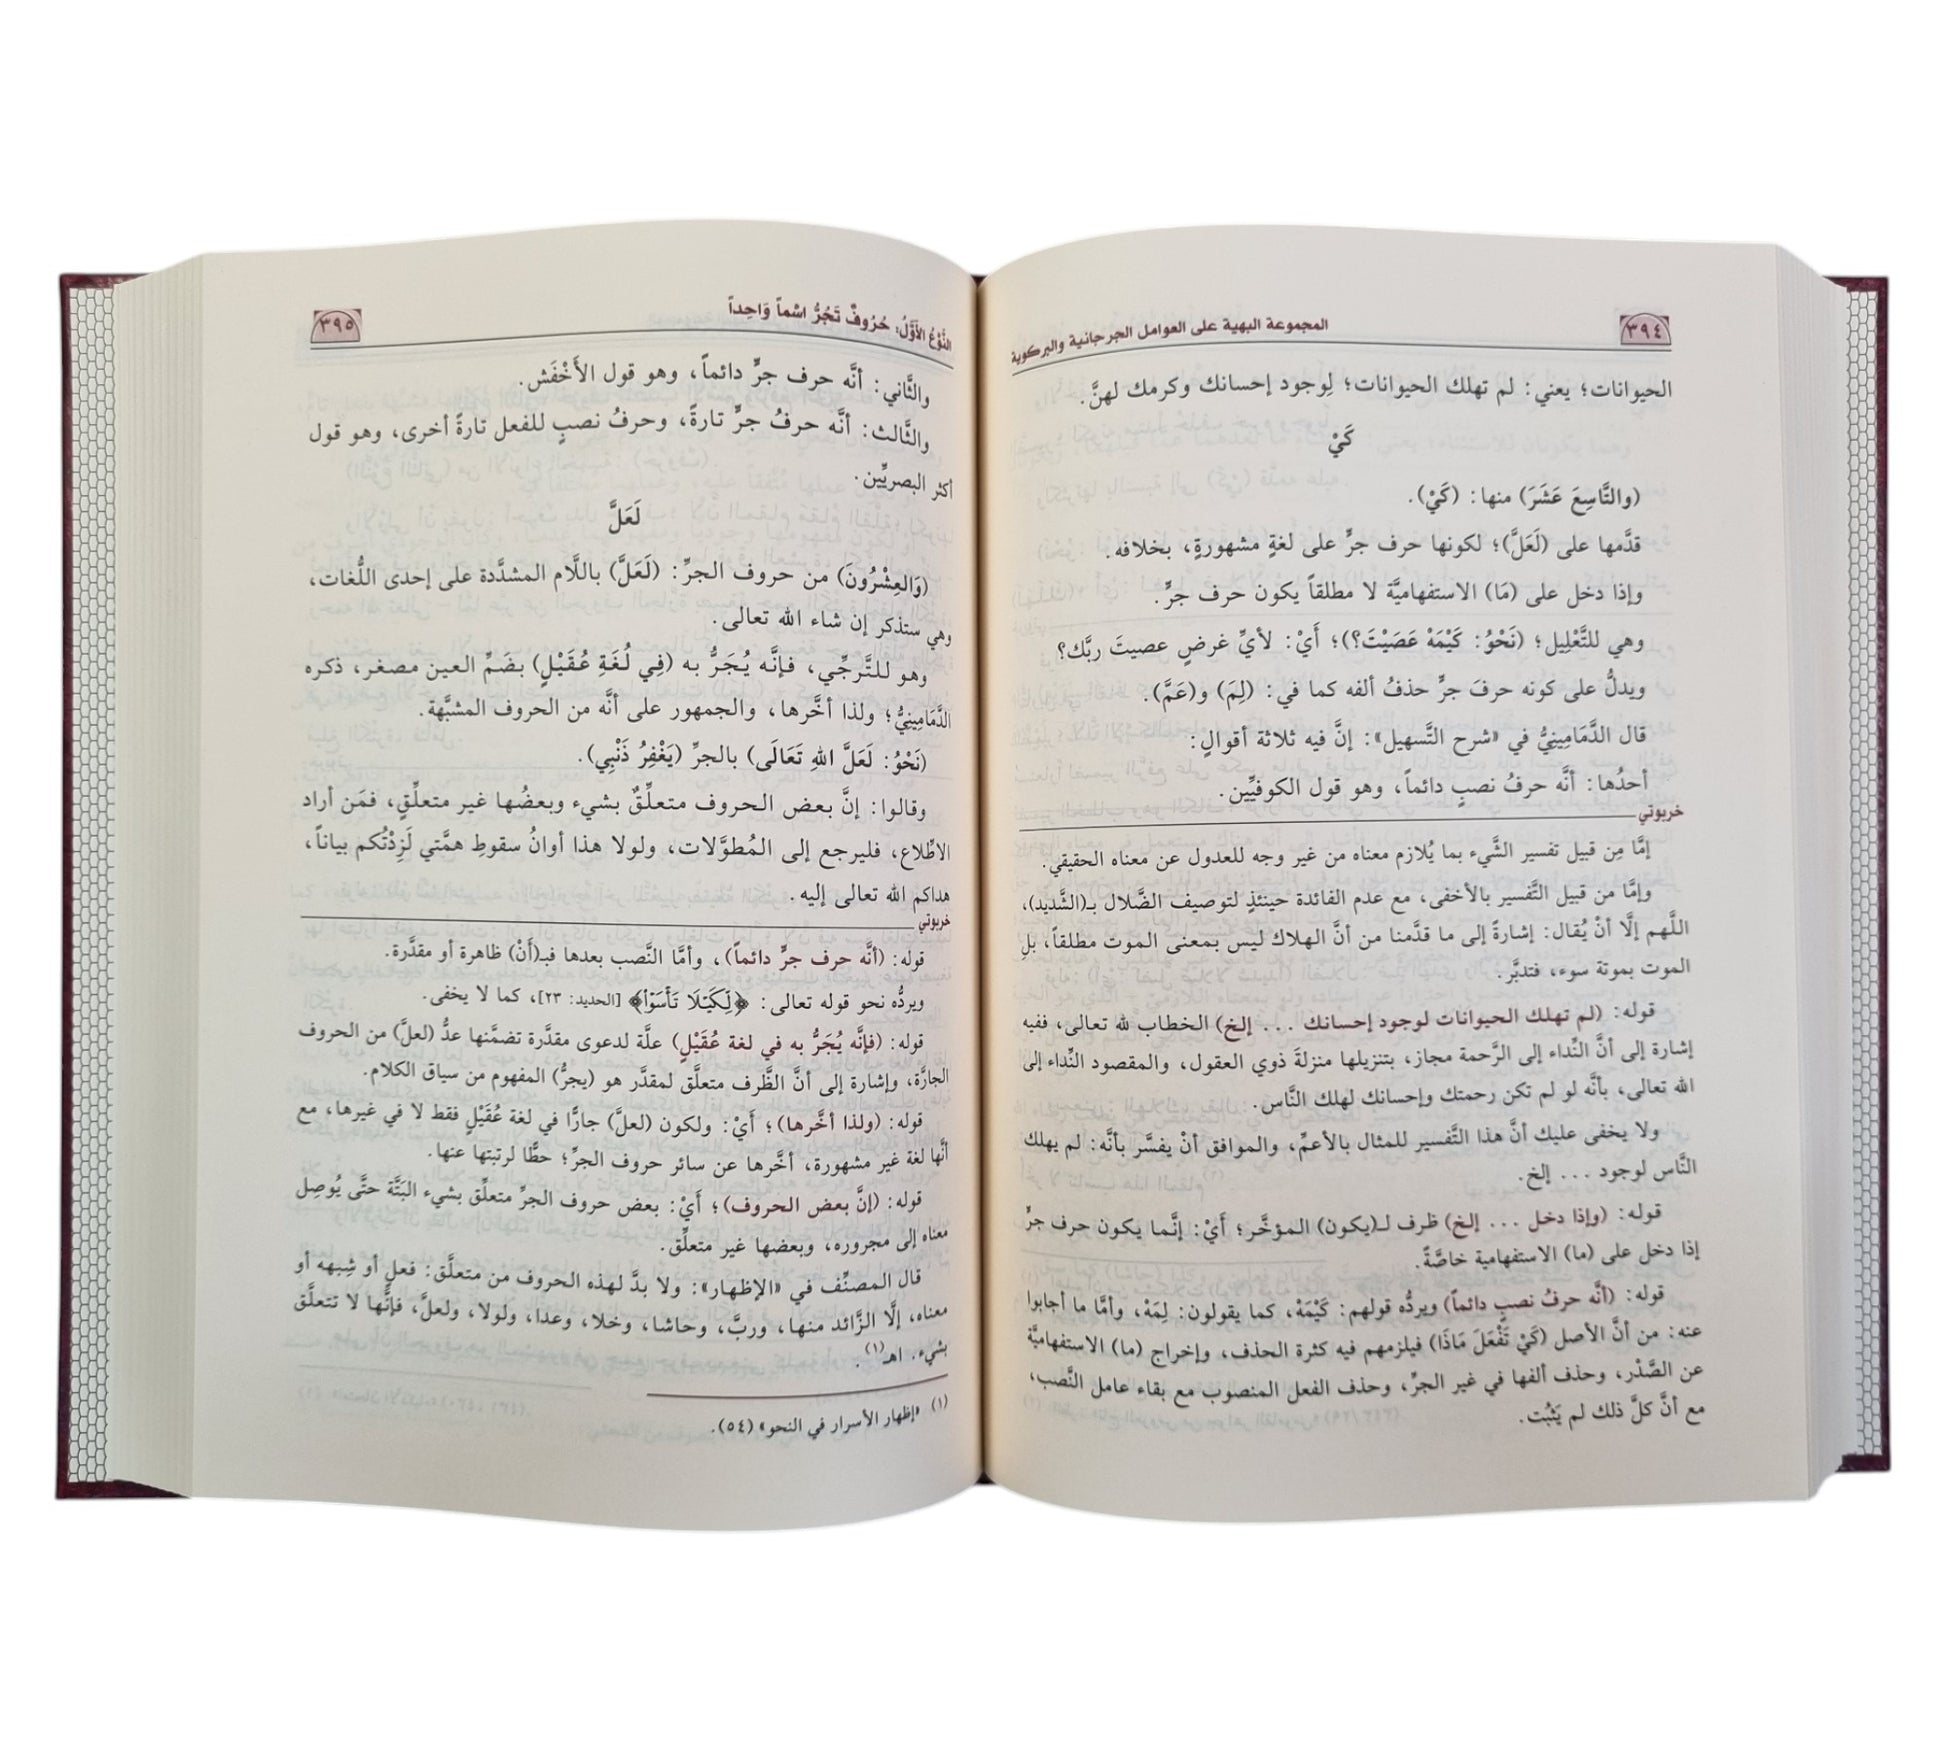 ٣٩٤
المجموعة البهية على العوامل الجرجانية والبركوية
الحيوانات؛ يعني: لم تهلك الحيوانات؛ لِوجود إحسانك وكرمك لهنَّ.
كَيْ
(والتَّاسِعَ عَشَرَ) منها: (كَيْ).
قدَّمها على (لَعَلَّ)؛ لكونها حرف جرٍّ على لغةٍ مشهورةٍ، بخلافه.
وإذا دخل على (مَا) الاستفهاميَّة لا مطلقاً يكون حرف جرٍّ.
وهي للتَّعْلِيل؛ (نَحْوُ: كَيْمَهْ عَصَيْتَ؟)؛ أَيْ: لأيِّ غرضٍ عصيتَ ربَّك؟
ويدلُّ على كونه حرفَ جرٍّ حذفُ ألفه كما في: (لِمَ) و(عَمَّ).
قال الدَّمَامِينِيُّ في «شرح التَّسهيل»: إنَّ فيه ثلاثة أقوالٍ:
أحدُها: أنَّه حرفُ نصبٍ دائماً، وهو قول الكوفيِّين.
خربوتي
إمَّا مِن قبيل تفسير الشَّيء بما يُلازم معناه من غير وجه للعدول عن معناه الحقيقي.
وإمَّا من قبيل التَّفسير بالأخفى، مع عدم الفائدة حينئذٍ لتوصيف الضَّلال بـ(الشَّديد)،
اللَّهم إلَّا أنْ يُقال: إشارةً إلى ما قدَّمنا من أنَّ الهلاك ليس بمعنى الموت مطلقاً، بلِ
الموت بموتة سوء، فتدبَّر.
قوله: (لم تهلك الحيوانات لوجود إحسانك ... إلخ) الخطاب لله تعالى، ففيه
إشارة إلى أنَّ النِّداء إلى الرَّحمة مجاز، بتنزيلها منزلةَ ذوي العقول، والمقصود النِّداء إلى
الله تعالى، بأنَّه لو لم تكن رحمتك وإحسانك لهلك النَّاس.
ولا يخفى عليك أنَّ هذا التَّفسير للمثال بالأعمِّ، والموافق أنْ يفسَّر بأنَّه: لم يهلك
النَّاس لوجود ... إلخ.
قوله: (وإذا دخل ... إلخ) ظرف لـ(يكون) المؤخَّر؛ أَيْ: إنَّما يكون حرف جرٍّ
إذا دخل على (ما) الاستفهامية خاصَّةً.
قوله: (أنَّه حرفُ نصبٍ دائماً) ويردُّه قولهم: كَيْمَهْ، كما يقولون: لِمَهْ، وأمَّا ما أجابوا
عنه: من أنَّ الأصل (كَيْ تَفْعَلَ مَاذَا) فيلزمهم فيه كثرة الحذف، وإخراج (ما) الاستفهاميَّة
عن الصَّدْر، وحذف ألفها في غير الجرِّ، وحذف الفعل المنصوب مع بقاء عامل النَّصب،
مع أنَّ كلَّ ذلك لم يَثبُت.
النَّوْعُ الأَوَّلُ: حُرُوفٌ تَجُرُّ اسْماً وَاحِداً
٣٩٥
والثَّاني: أنَّه حرف جرٍّ دائماً، وهو قول الأَخْفَش.
والثَّالث: أنَّه حرفُ جرٍّ تارةً، وحرفُ نصبٍ للفعل تارةً أخرى، وهو قول
أكثر البصريِّين.
لَعَلَّ
(وَالعِشْرُونَ) من حروف الجرِّ: (لَعَلَّ) باللَّام المشدَّدة على إحدى اللُّغات،
وهي ستذكر إن شاء الله تعالى.
وهو للتَّرجِّي، فإنَّه يُجَرُّ به (فِي لُغَةِ عُقَيْلٍ) بضَمِّ العين مصغر، ذكره
الدَّمَامِينِيُّ؛ ولذا أخَّرها، والجمهور على أنَّه من الحروف المشبَّهة.
(نَحْوُ: لَعَلَّ اللهِ تَعَالَى) بالجرِّ (يَغْفِرُ ذَنْبِي).
وقالوا: إنَّ بعض الحروف متعلِّقٌ بشيء وبعضُها غير متعلِّقٍ، فمَن أراد
الاطِّلاع، فليرجع إلى المُطوَّلات، ولولا هذا أوانُ سقوطِ همَّتي لَزِدْتُكم بياناً،
هداكم الله تعالى إليه.
خربوتي
قوله: (أنَّه حرف جرٍّ دائماً)، وأمَّا النَّصب بعدها فبـ(أَنْ) ظاهرة أو مقدَّرة.
ويردُّه نحو قوله تعالى: ﴿لِّكَيْلَا تَأْسَوْا﴾ [الحديد: ٢٣]، كما لا يخفى.
قوله: (فإنَّه يُجَرُّ به في لغة عُقَيْلٍ) علَّة لدعوى مقدَّرة تضمَّنها عدُّ (لعلَّ) من الحروف
الجارَّة، وإشارة إلى أنَّ الظَّرف متعلَّق لمقدَّر هو (يجرُّ) المفهوم من سياق الكلام.
قوله: (ولذا أخَّرها)؛ أَيْ: ولكون (لعلَّ) جارًّا في لغة عُقَيْلٍ فقط لا في غيرها، مع
أنَّها لغة غير مشهورة، أخَّرها عن سائر حروف الجرِّ؛ حطًّا لرتبتها عنها.
قوله: (إنَّ بعض الحروف)؛ أَيْ: بعض حروف الجرِّ متعلِّق بشيء البَتَّة حتَّى يُوصِل
معناه إلى مجروره، وبعضها غير متعلِّق.
قال المصنِّف في «الإظهار»: ولا بدَّ لهذه الحروف من متعلَّق: فعلٍ أو شِبهه أو
معناه، إلَّا الزَّائد منها، وربَّ، وحاشا، وخلا، وعدا، ولولا، ولعلَّ، فإنَّها لا تتعلَّق
بشيء. اهـ(١).
(١) «إظهار الأسرار في النحو» (٥٤).